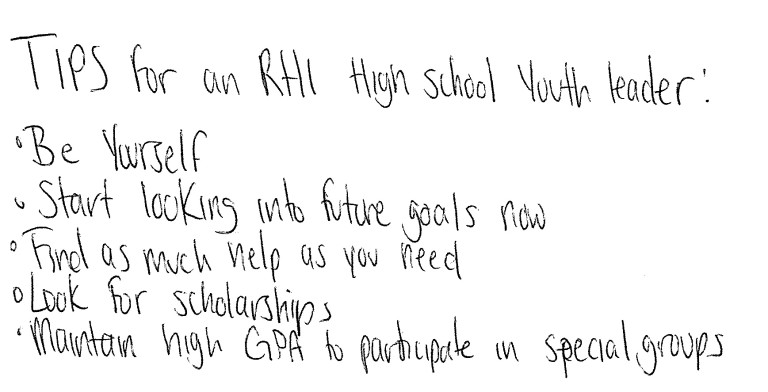 TIPS for an RHI High school Youth leader:
• Be Yourself
• Start looking into future goals now
• Find as much help as you need
• Look for scholarships
• Maintain high GPA to participate in special groups